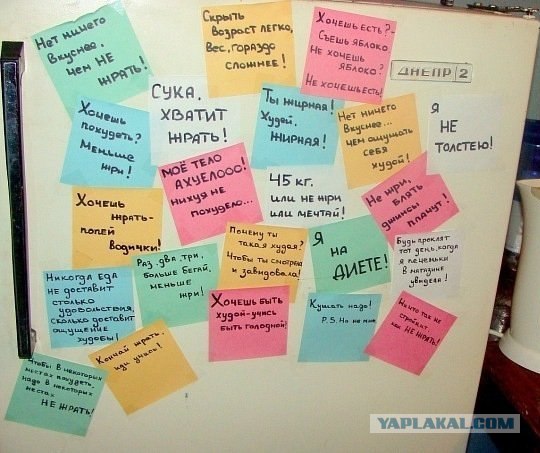 Нет ничего
вкуснее,
чем НЕ
ЖРАТЬ!
Скрыть
возраст легко,
Вес, гораздо
сложнее!
Хочешь есть?-
Съешь яблоко
Не хочешь
яблоко?
Не хочешь есть!
ДНЕПР 2
Хочешь
похудеть?
Меньше
жри!
СУКА,
ХВАТИТ
ЖРАТЬ!
Ты жирная!
Худей,
ЖИРНАЯ!
Нет ничего
вкуснее...
чем ощущать
себя
худой!
Я
НЕ
ТОЛСТЕЮ!
МОЁ ТЕЛО
АХУЕЛООО!
нихуя не
похудело...
45 кг.
или не жри
или мечтай!
Не жри,
БЛЯТЬ
джинсы
плачут!
Хочешь
жрать-
попей
водички!
Раз, два, три,
больше бегай,
меньше
жри!
Почему ты
такая худая?
Чтобы ты смотрела
и завидовала!
Я
НА
ДИЕТЕ!
Будь проклят
тот день, когда
я печеньки
в магазине
увидела!
Никогда ЕДА
НЕ доставит
столько
удовольствия,
сколько доставит
ощущение
худобы!
Хочешь быть
худой-учись
быть голодной!
Кушать надо!
P.S. Но не мне
Ничто так не
стройнит,
как НЕ ЖРАТЬ!
Кончай жрать,
иди учись!
Чтобы в некоторых
местах похудеть,
надо в некоторых
местах
НЕ ЖРАТЬ!
YAPLAKAL.COM